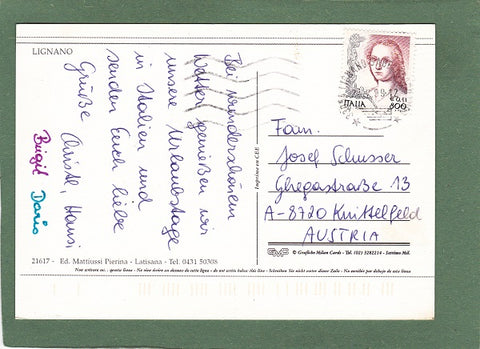 LIGNANO
Bei wunderschönem
Wetter genießen wir
unsere Urlaubstage
in Italien und
senden Euch liebe
Grüße Christl, Hansi
Birgit Dario
ITALIA
800
€ 0,41
Fam.
Josef Schusser
Ghegastraße 13
A-8720 Knittelfeld
AUSTRIA
Imprimé en CEE
21617 - Ed. Mattiussi Pierina - Latisana - Tel. 0431 50308
© Grafiche Milan Cards - Tel. (02) 3282214 - Settimo Mil.
Non scrivere su questa linea - Ne rien écrire au dessous de cette ligne - do not write below this line - Schreiben Sie nicht unter dieser Zeile - No escribir por debajo de esta linea